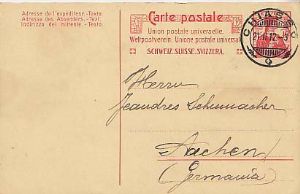 Adresse de l'expéditeur.-Texte
Adresse des Absenders.-Text.
Indirizzo del mittente.-Testo
Carte postale
Union postale universelle.
Weltpostverein. Unione postale universale.
SCHWEIZ. SUISSE. SVIZZERA.
CHIASSO
Herrn
Jeandres Schumacher
Aachen
(Germania)